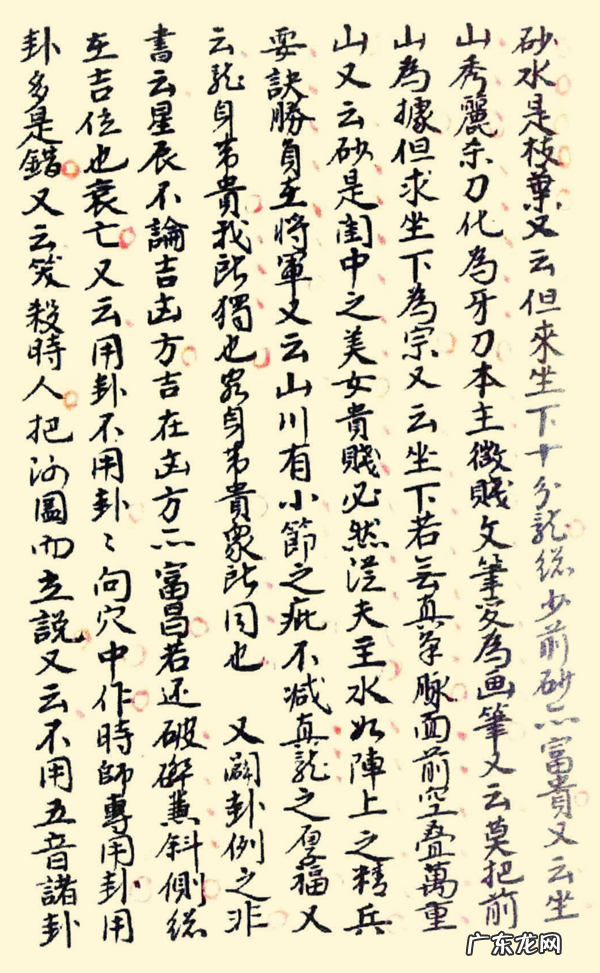 砂水是枝葉又云但來坐下十分龍縂少前砂亦富貴又云坐
山秀麗杀刀化為牙刀本主微賤文筆变為画筆又云莫把前
山為據但求坐下為宗又云坐下若無真氣脉面前空叠萬重
山又云砂是閨中之美女貴賤必然従夫主水如陣上之精兵
要訣勝負在將軍又云山川有小節之疵不减真龍之厚福又
云龍身帯貴我所獨也客身帯貴衆所同也 又闢卦例之非
書云星辰不論吉凶方吉在凶方亦富昌若还破碎兼斜側縂
在吉位也衰亡又云用卦不用卦〻向穴中作時師專用卦用
卦多是錯又云笑殺時人把河圖而立説又云不用五音諸卦
广东龙网